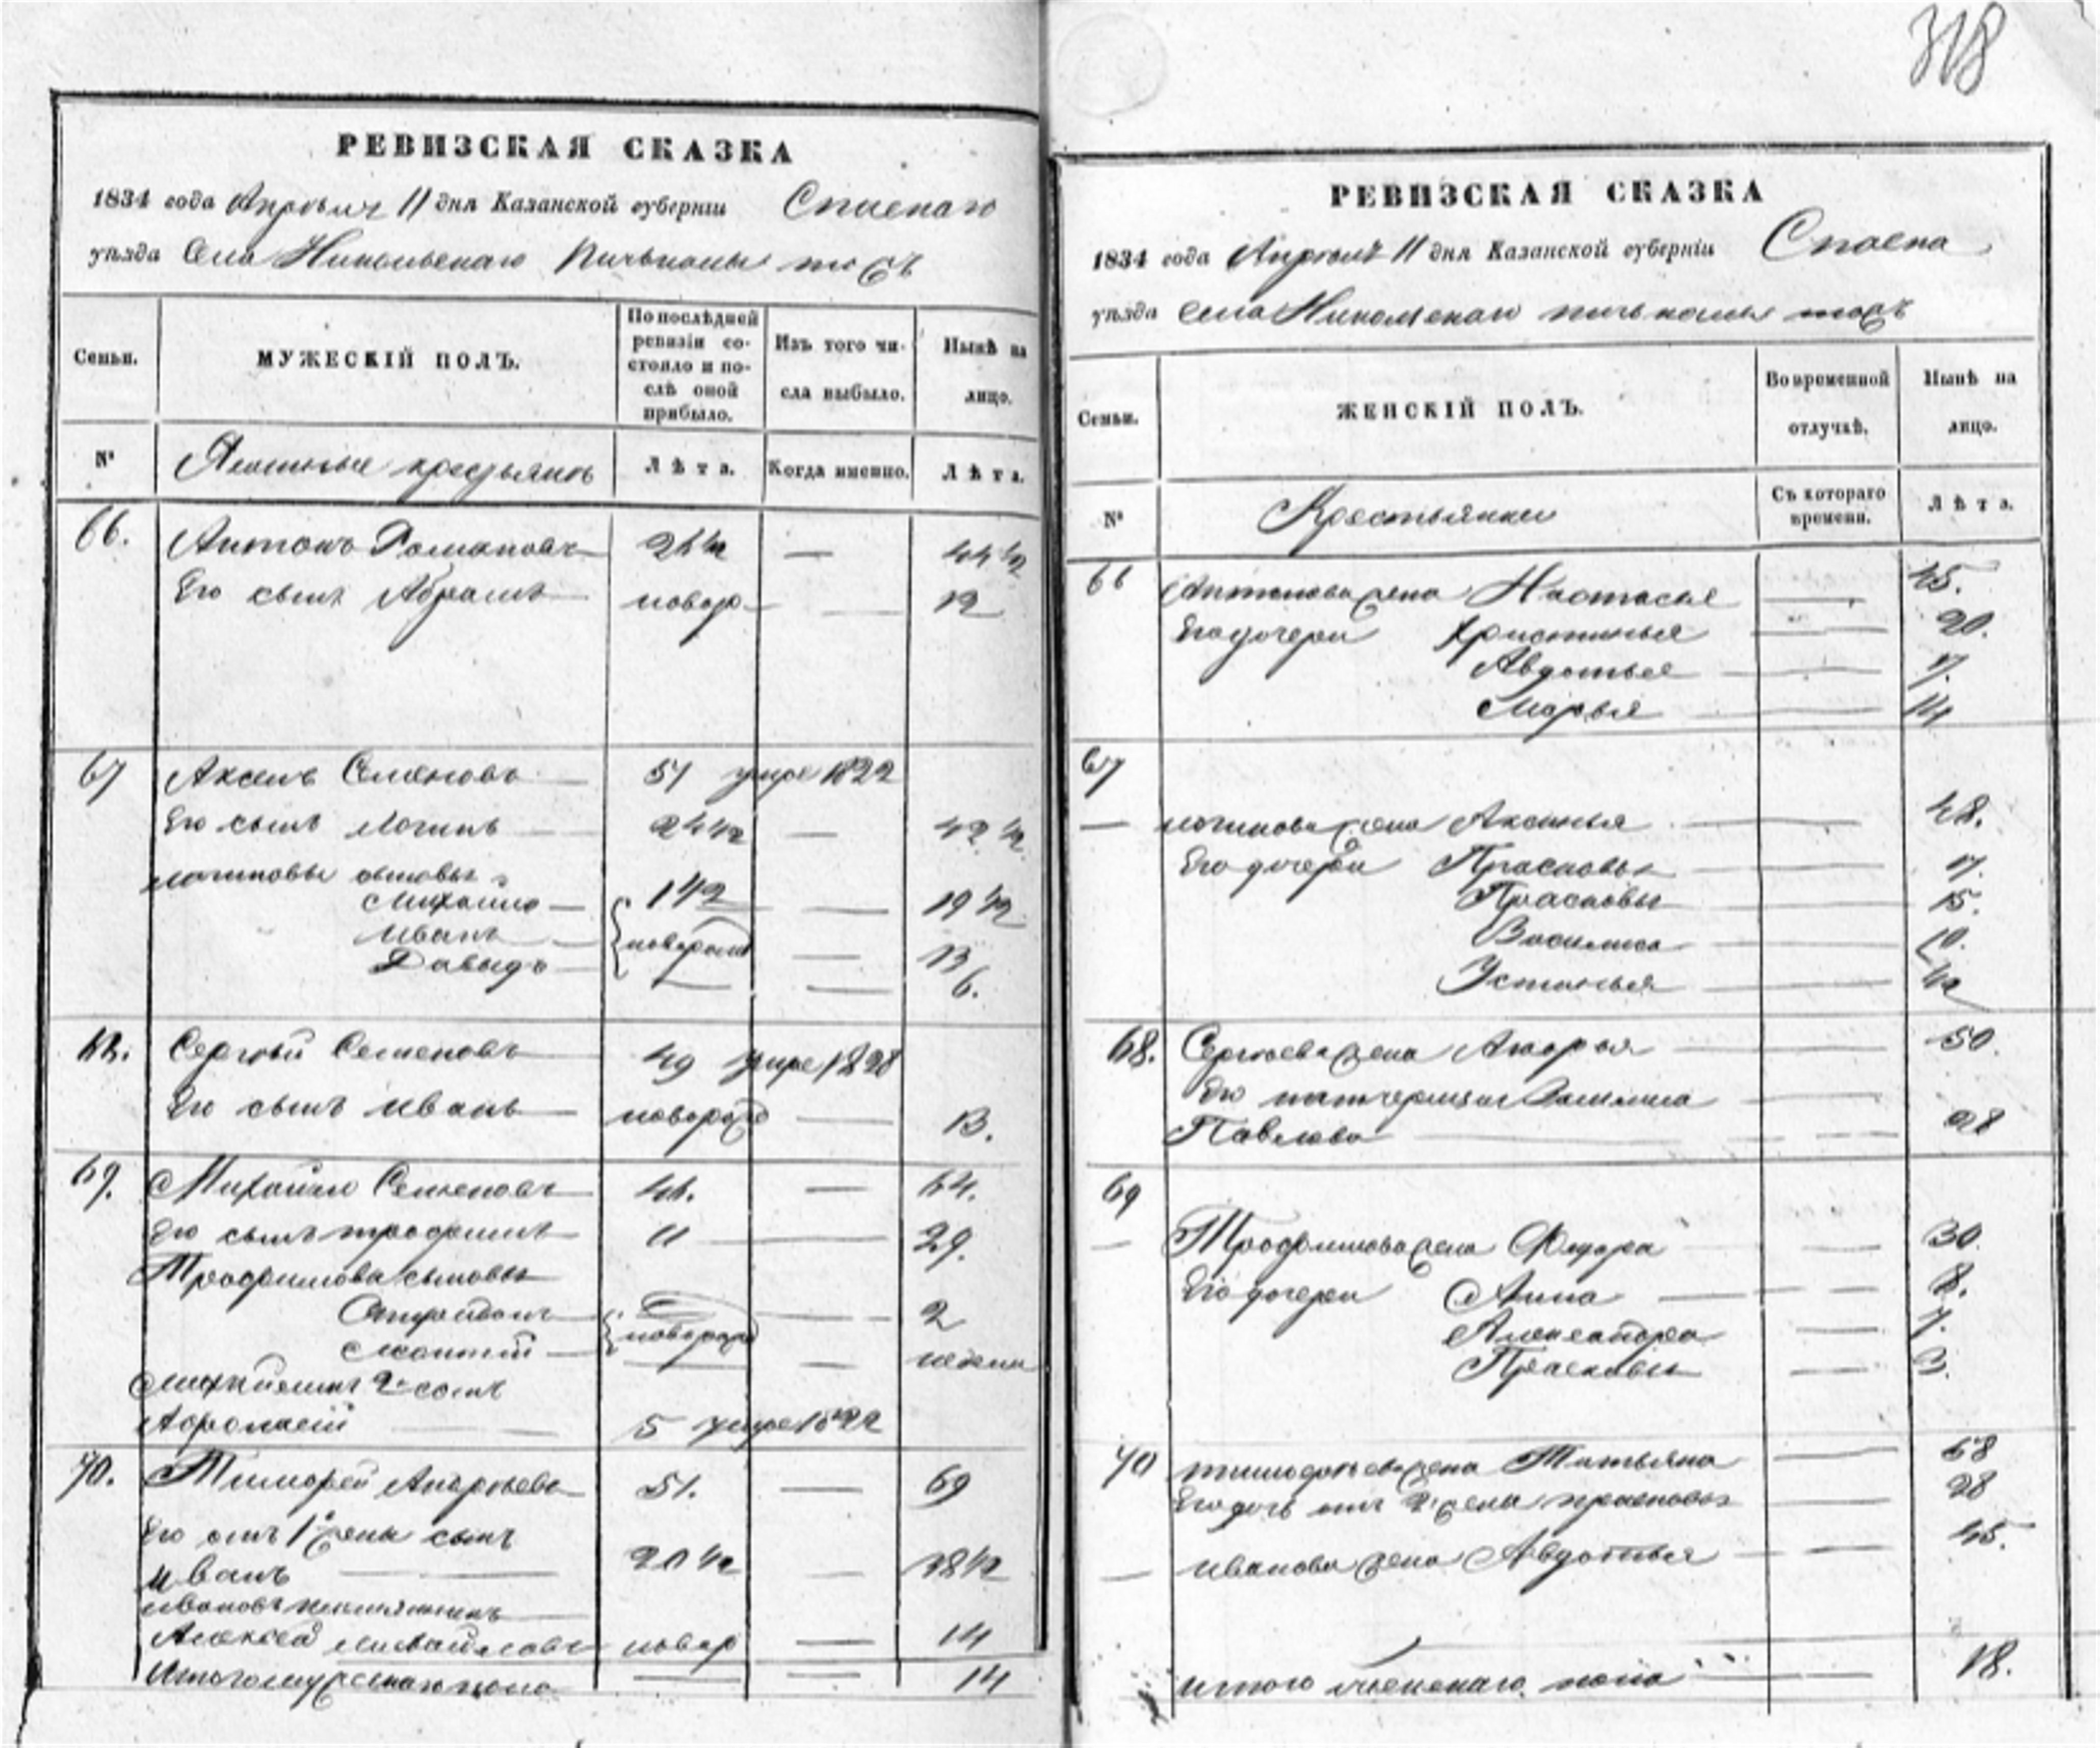 318
РЕВИЗСКАЯ СКАЗКА
1834 года Апреля 11 дня Казанской губернiи Спаскаго
уѣзда Села Никольскаго тожъ
Семьи. МУЖЕСКIЙ ПОЛЪ. По послѣдней ревизiи состояло и послѣ оной прибыло. Изъ того числа выбыло. Нынѣ на лицо.
№ крестьянъ Лѣта. Когда именно. Лѣта.
66. Антонъ Романовъ — 26 1/2 — 44 1/2
Его сынъ Абрамъ — новор — — 12
67 Семеновъ — 51 умре 1822
Его сынъ Логинъ — 24 1/2 — 42 1/2
Логиновы сыновья
Михайло — 1 1/2 — 19 1/2
Иванъ — новорож — 13
Давыдъ — — — 6.
68. Сергѣй Семеновъ — 49 умре 1828
Его сынъ Иванъ — новорож — 13.
69. Михайло Семеновъ — 46. — 64.
Его сынъ Трофимъ — 11 — 29.
Трофимова сыновья
— — 2
— новорож —
2й сынъ
Афонасiй — 5 умре 1822
70. Тимофей Андреевъ — 51. — 69
Его отъ 1й жены сынъ
Иванъ — 20 1/2 — 38 1/2
Ивановъ племянникъ —
Алексей Михайловъ новор — 14
Итого мужескаго пола — — — 14
РЕВИЗСКАЯ СКАЗКА
1834 года Апреля 11 дня Казанской губернiи Спаска
уѣзда Села Никольскаго тожъ
Семьи. ЖЕНСКIЙ ПОЛЪ. Во временной отлучкѣ. Нынѣ на лицо.
№ Крестьянки Съ котораго времени. Лѣта.
66 Антонова жена Настасья — 45.
Его дочери Христинья — 20.
Авдотья — — 17.
Марья — — 14
67
— Логинова жена Аксинья — — 48.
Его дочери Прасковья — — 17.
Прасковья — — 15.
Василиса — — 10.
Устинья — — 1/2
68. Сергѣева жена — — 50.
Его падчерица Василиса —
Павлова — — 28
69
— Трофимова жена Федора — — 30
Его дочери Анна — — 8.
Александра — 7.
Прасковья — 3.
70 Тимофеева жена Татьяна — 68
Его дочь отъ 2й жены Прасковья — 28
— Иванова жена Авдотья — — 45.
Итого женскаго пола — — 18.